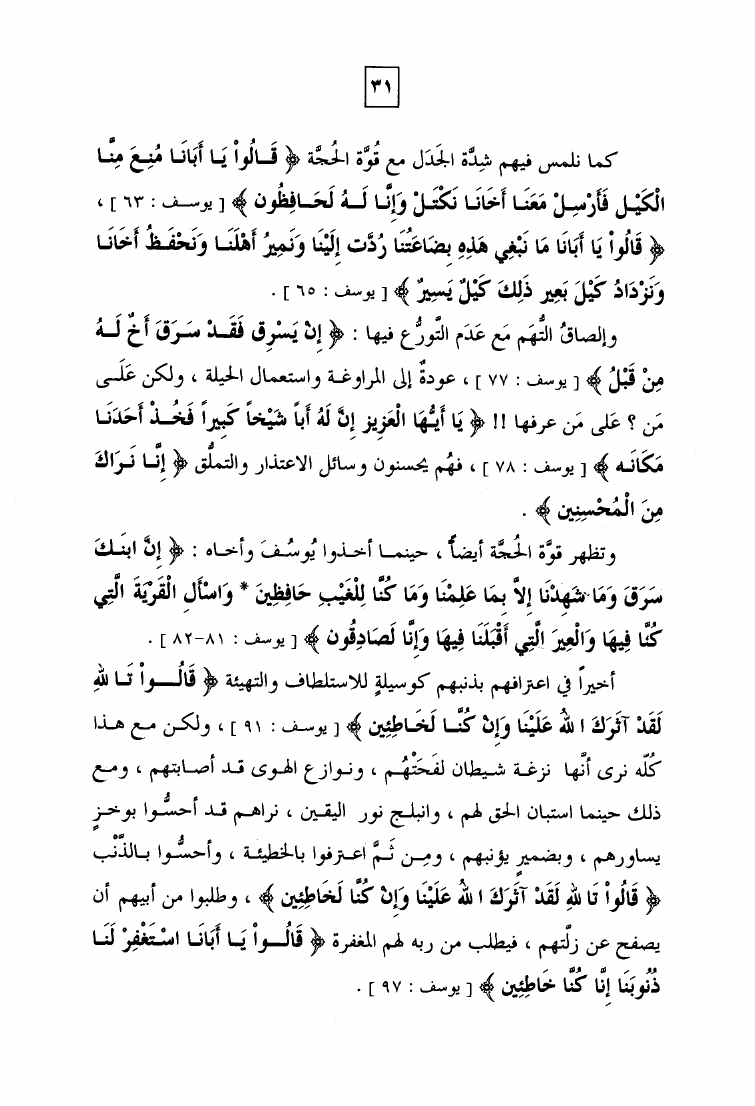 ٣١
كما نلمس فيهم شِدَّة الجَدَل مع قُوَّة الحُجَّة ﴿ قَالُواْ يَا أَبَانَا مُنِعَ مِنَّا
الْكَيْلِ فَأَرْسِلْ مَعَنَا أَخَانَا نَكْتَلْ وَإِنَّا لَهُ لَحَافِظُون ﴾ [ يوسف : ٦٣ ] ،
﴿ قَالُواْ يَا أَبَانَا مَا نَبْغِي هَذِهِ بِضَاعَتُنَا رُدَّت إِلَيْنَا وَنَمِيرُ أَهْلَنَا وَنَحْفَظُ أَخَانَا
وَنَزْدَادُ كَيْلَ بَعِير ذَلِكَ كَيْلٌ يَسِيرٌ ﴾ [ يوسف : ٦٥ ] .
وإلصاقُ التُّهَم مَع عَدَم التَّورُّع فيها : ﴿ إِنْ يَسْرِق فَقَدْ سَرَقَ أَخٌ لَهُ
مِنْ قَبْلُ ﴾ [ يوسف : ٧٧ ] ، عودةٌ إلى المراوغة واستعمال الحيلة ، ولكن عَلَى
مَن ؟ عَلى مَن عرفها !! ﴿ يَا أَيُّهَا الْعَزِيز إِنَّ لَهُ أَباً شَيْخاً كَبِيراً فَخُذْ أَحَدَنَا
مَكَانَه ﴾ [ يوسف : ٧٨ ] ، فهُم يحسنون وسائل الاعتذار والتملُّق ﴿ إِنَّا نَرَاكَ
مِنَ الْمُحْسِنِين ﴾ .
وتظهر قوَّة الحُجَّة أيضاً ، حينما أخذوا يُوسُفَ وأخاه : ﴿ إِنَّ ابْنَكَ
سَرَقَ وَمَا شَهِدْنَا إِلاَّ بِمَا عَلِمْنَا وَمَا كُنَّا لِلْغَيْبِ حَافِظِينَ * وَاسْأَلِ الْقَرْيَةَ الَّتِي
كُنَّا فِيهَا وَالْعِيرَ الَّتِي أَقْبَلَنَا فِيهَا وَإِنَّا لَصَادِقُون ﴾ [ يوسف : ٨١-٨٢ ] .
أخيراً في اعترافهم بذنبهم كوسيلةٍ للاستلطاف والتهيئة ﴿ قَالُواْ تَا للهِ
لَقَدْ آثَرَكَ ا للهُ عَلَيْنَا وَإِنْ كُنَّا لَخَاطِئِين ﴾ [ يوسف : ٩١ ] ، ولكن مع هذا
كُلّه نرى أنَّها نزغة شيطان لفَحَتْهُم ، ونوازع الهوى قد أصابتهم ، ومع
ذلك حينما استبان الحق لهم ، وانبلج نور اليقين ، نراهم قد أحسُّوا بوخزٍ
يساورهم ، وبضميرٍ يؤنبهم ، ومِن ثَمَّ اعترفوا بالخطيئة ، وأحسُّوا بالذَّنْب
﴿ قَالُواْ تَا للهِ لَقَدْ آثَرَكَ ا للهُ عَلَيْنَا وَإِنْ كُنَّا لَخَاطِئِين ﴾ ، وطلبوا من أبيهم أن
يصفح عن زلّتهم ، فيطلب من ربه لهم المغفرة ﴿ قَالُواْ يَا أَبَانَا اسْتَغْفِرْ لَنَا
ذُنُوبَنَا إِنَّا كُنَّا خَاطِئِين ﴾ [ يوسف : ٩٧ ] .